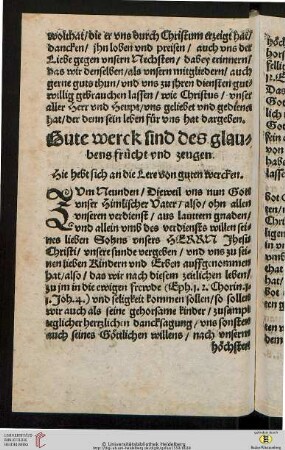 wolthat/die er vns durch Christum erzeigt hat/
dancken/ jhn loben vnd preisen/ auch vns der
Liebe gegen vnsern Nechsten/ dabey erinnern/
das wir denselben/als vnsern mitgliedern/ auch
gerne guts thun/ vnd vns zu jhren diensten gut-
willig gebrauchen lassen/ wie Christus/ vnser
aller Herr vnd Heupt/ vns geliebet vnd gedienet
hat/der denn sein leben für vns hat dargeben.
Gute werck sind des glau-
bens frücht vnd zeugen.
Hie hebt sich an die Lere von guten wercken.
ZVm Neunden/ Dieweil vns nun Gott
vnser Himlischer Vater/also/ ohn allen
vnseren verdienst/ aus lauterm gnaden/
vnd allein vmb des verdiensts willen sei-
nes lieben Sohns vnsers HERRN Jhesu
Christi/ vnsere sunde vergeben/ vnd vns zu sei-
nen lieben Kindern vnd Erben auffgenommen
hat/also/ das wir nach diesem zeitlichen leben/
zu jm in die ewigen frewde (Eph.1. 2. Chorin.1.
1. Joh.4.) vnd seligkeit kommen sollen/so sollen
wir auch als seine gehorsame kinder/ zusampt
teglicher hertzlichen dancksagung/ vns sonsten
auch seines Göttlichen willens/ nach vnserm
höchsten
© Universitätsbibliothek Heidelberg